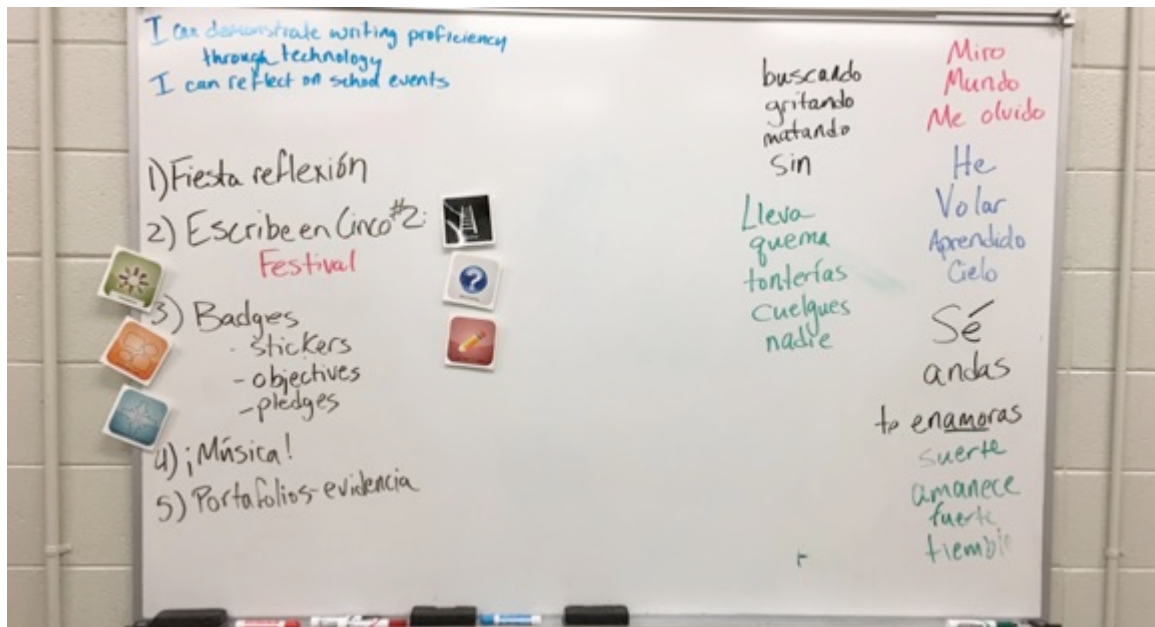 I can demonstrate writing proficiency
through technology
I can reflect on school events
1) Fiesta reflexión
2) Escribe en Cinco #2:
Festival
3) Badges
- stickers
- objectives
- pledges
4) ¡Música!
5) Portafolios-evidencia
buscando
gritando
matando
sin
Lleva
quema
tonterías
cuelgues
nadie
Miro
Mundo
Me olvido
He
Volar
Aprendido
Cielo
Sé
andas
te enamoras
suerte
amanece
fuerte